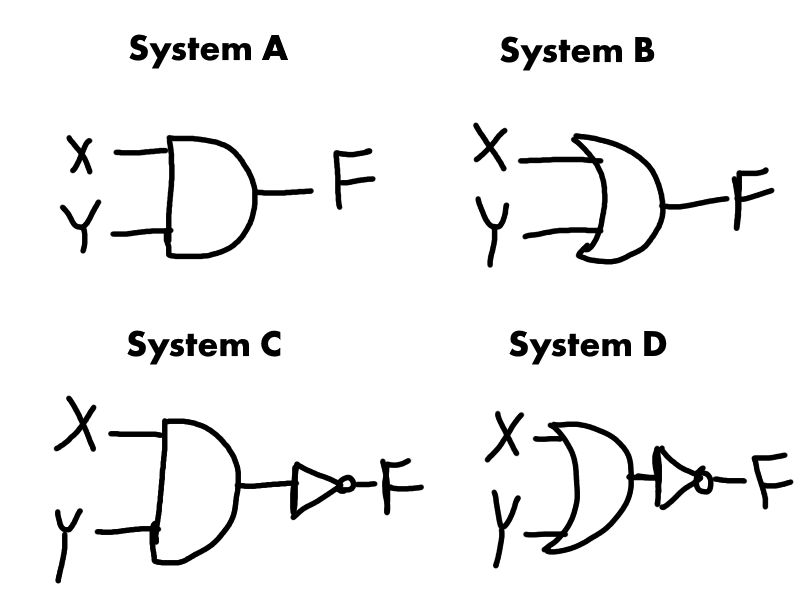 System A
X
Y
F
System B
X
Y
F
System C
X
Y
F
System D
X
Y
F